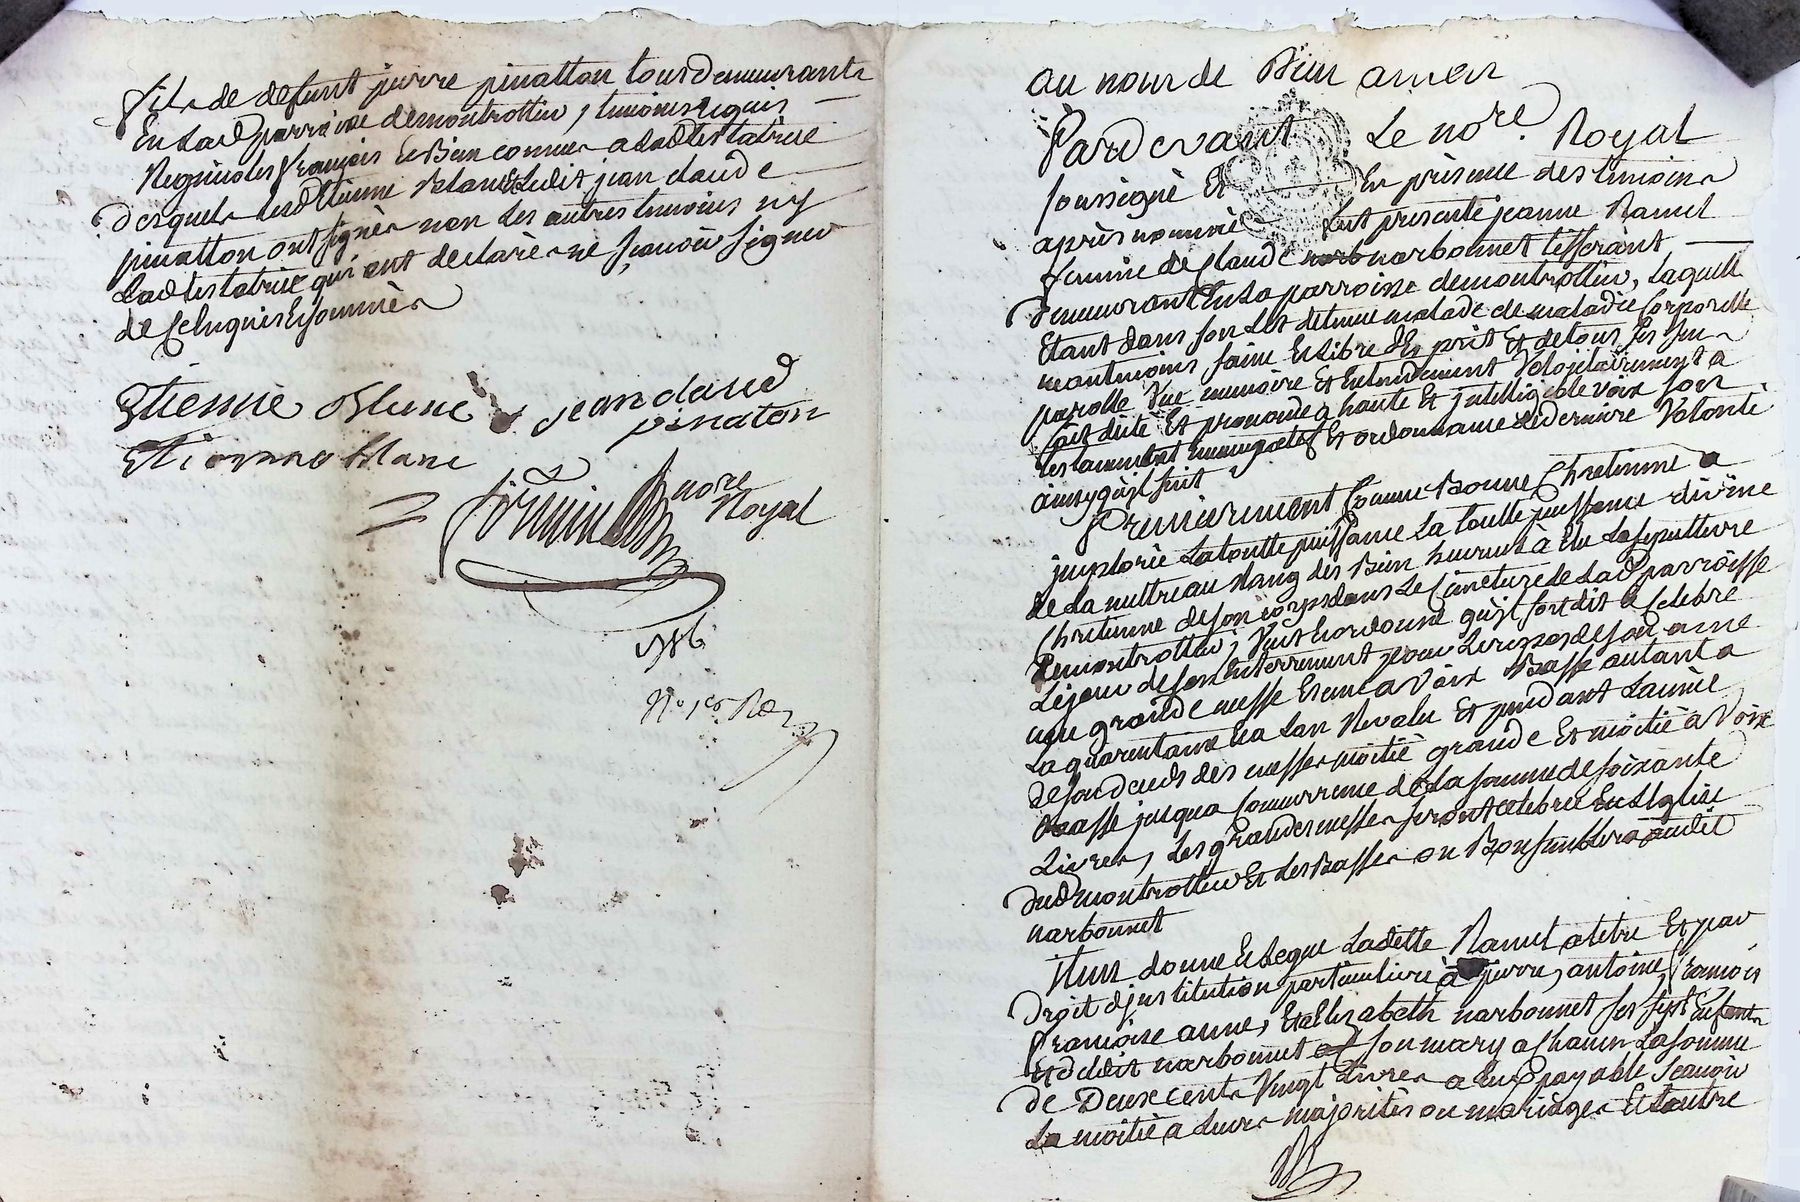 fils de defunt pierre pinatton tous demeurants
En lad parroisse de montrottier, temoins requis
Requis les français et Bien connus a lad testatrice
desquels led Etienne Blanc & ledit jean claude
pinatton ont signés non les autres temoins ny
Lad testatrice qui ont declarés ne sçavoir signer
de ce Enquis et sommés
Etienne Blanc jean claud
pinaton
Etienne blanc
nore
Royal
au nom de Dieu amen
Pardevant Le nore. Royal
soussigné Et En présence des temoins
après nommés fut presente jeanne Ramel
femme de Claude narbonnet tisserant
demeurant En la parroisse de montrottier, Laquelle
Etant dans son Lit detenue malade de maladie Corporelle
neantmoins saine Et Libre d'Esprit Et de tous ses sens
parolle Vue memoire Et Entendement Volontairement a
fait dicté Et prononcé a haute Et jntelligible voix son
testament nuncupatif Et ordonnance de derniere Volonté
ainsy qu'il suit
Premierement Comme Bonne Chretienne a
jmploré La toutte puissance La toutte puissance divine
de La mettre au Rang des Bien heureux à Elu La sepulture
Chretienne de son corps dans Le Cimetiere de Lad parroisse
de montrottier, Veut Et ordonne qu'il soit dit & Celebré
Le jour de son Enterrement pour Le repos de son ame
une grande messe Et une a Voix Basse autant a
La quarantaine Et a L'an Revolu Et pendant L'année
de son deceds des messes moitié grande Et moitié a Voix
Basse jusqua Concurrence de La somme de soixante
Livres, Les grandes messes seront celebrées En L'Eglise
dud montrottier Et Les Basses ou Bon semblera audit
narbonnet
Item donne Et Legue Laditte Ramel a titre Et par
Droit d'jnstitution particuliere à pierre, antoine, françois
françoise anne, Et Elizabeth narbonnet ses six Enfants
Et dudit narbonnet son mary a Chacun La somme
de Deux cents Vingt Livres a Eux payable Sçavoir
La moitié a Leurs majorités ou mariages Et L'autre